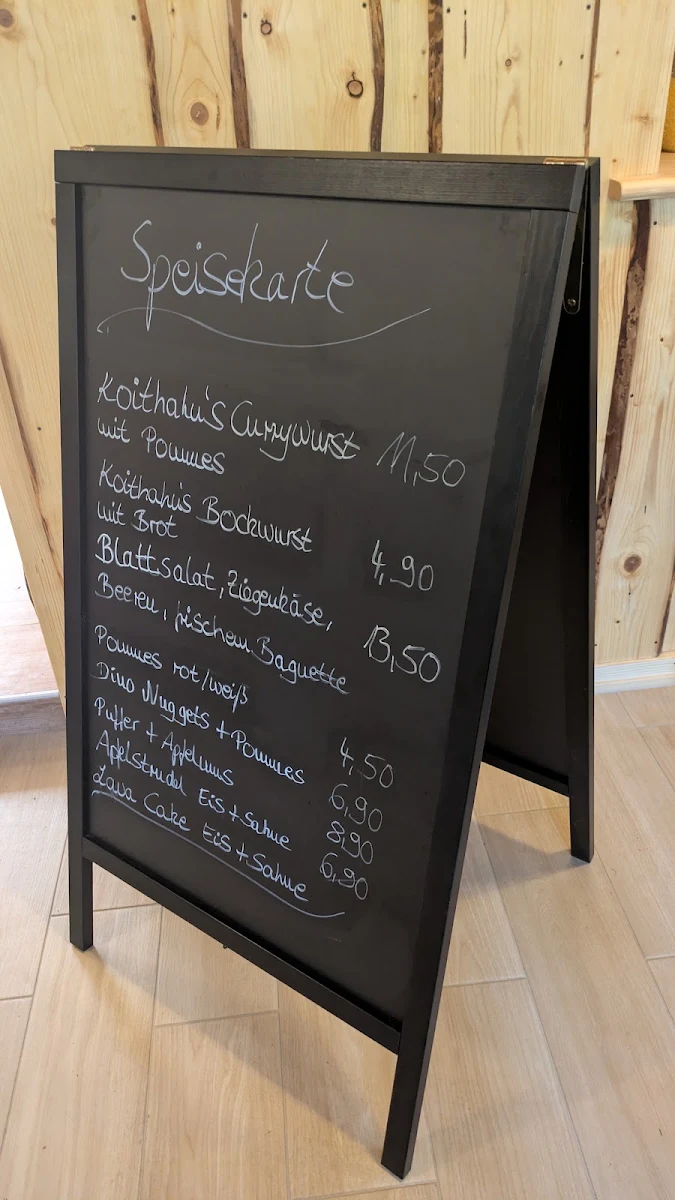 Speisekarte
Koithahn's Currywurst 11,50
mit Pommes
Koithahn's Bockwurst
mit Brot 4,90
Blattsalat, Ziegenkäse,
Beeren, frischem Baguette 13,50
Pommes rot/weiß 4,50
Dino Nuggets + Pommes 6,90
Puffer + Apfelmus 8,90
Apfelstrudel Eis + Sahne 6,90
Lava Cake Eis + Sahne